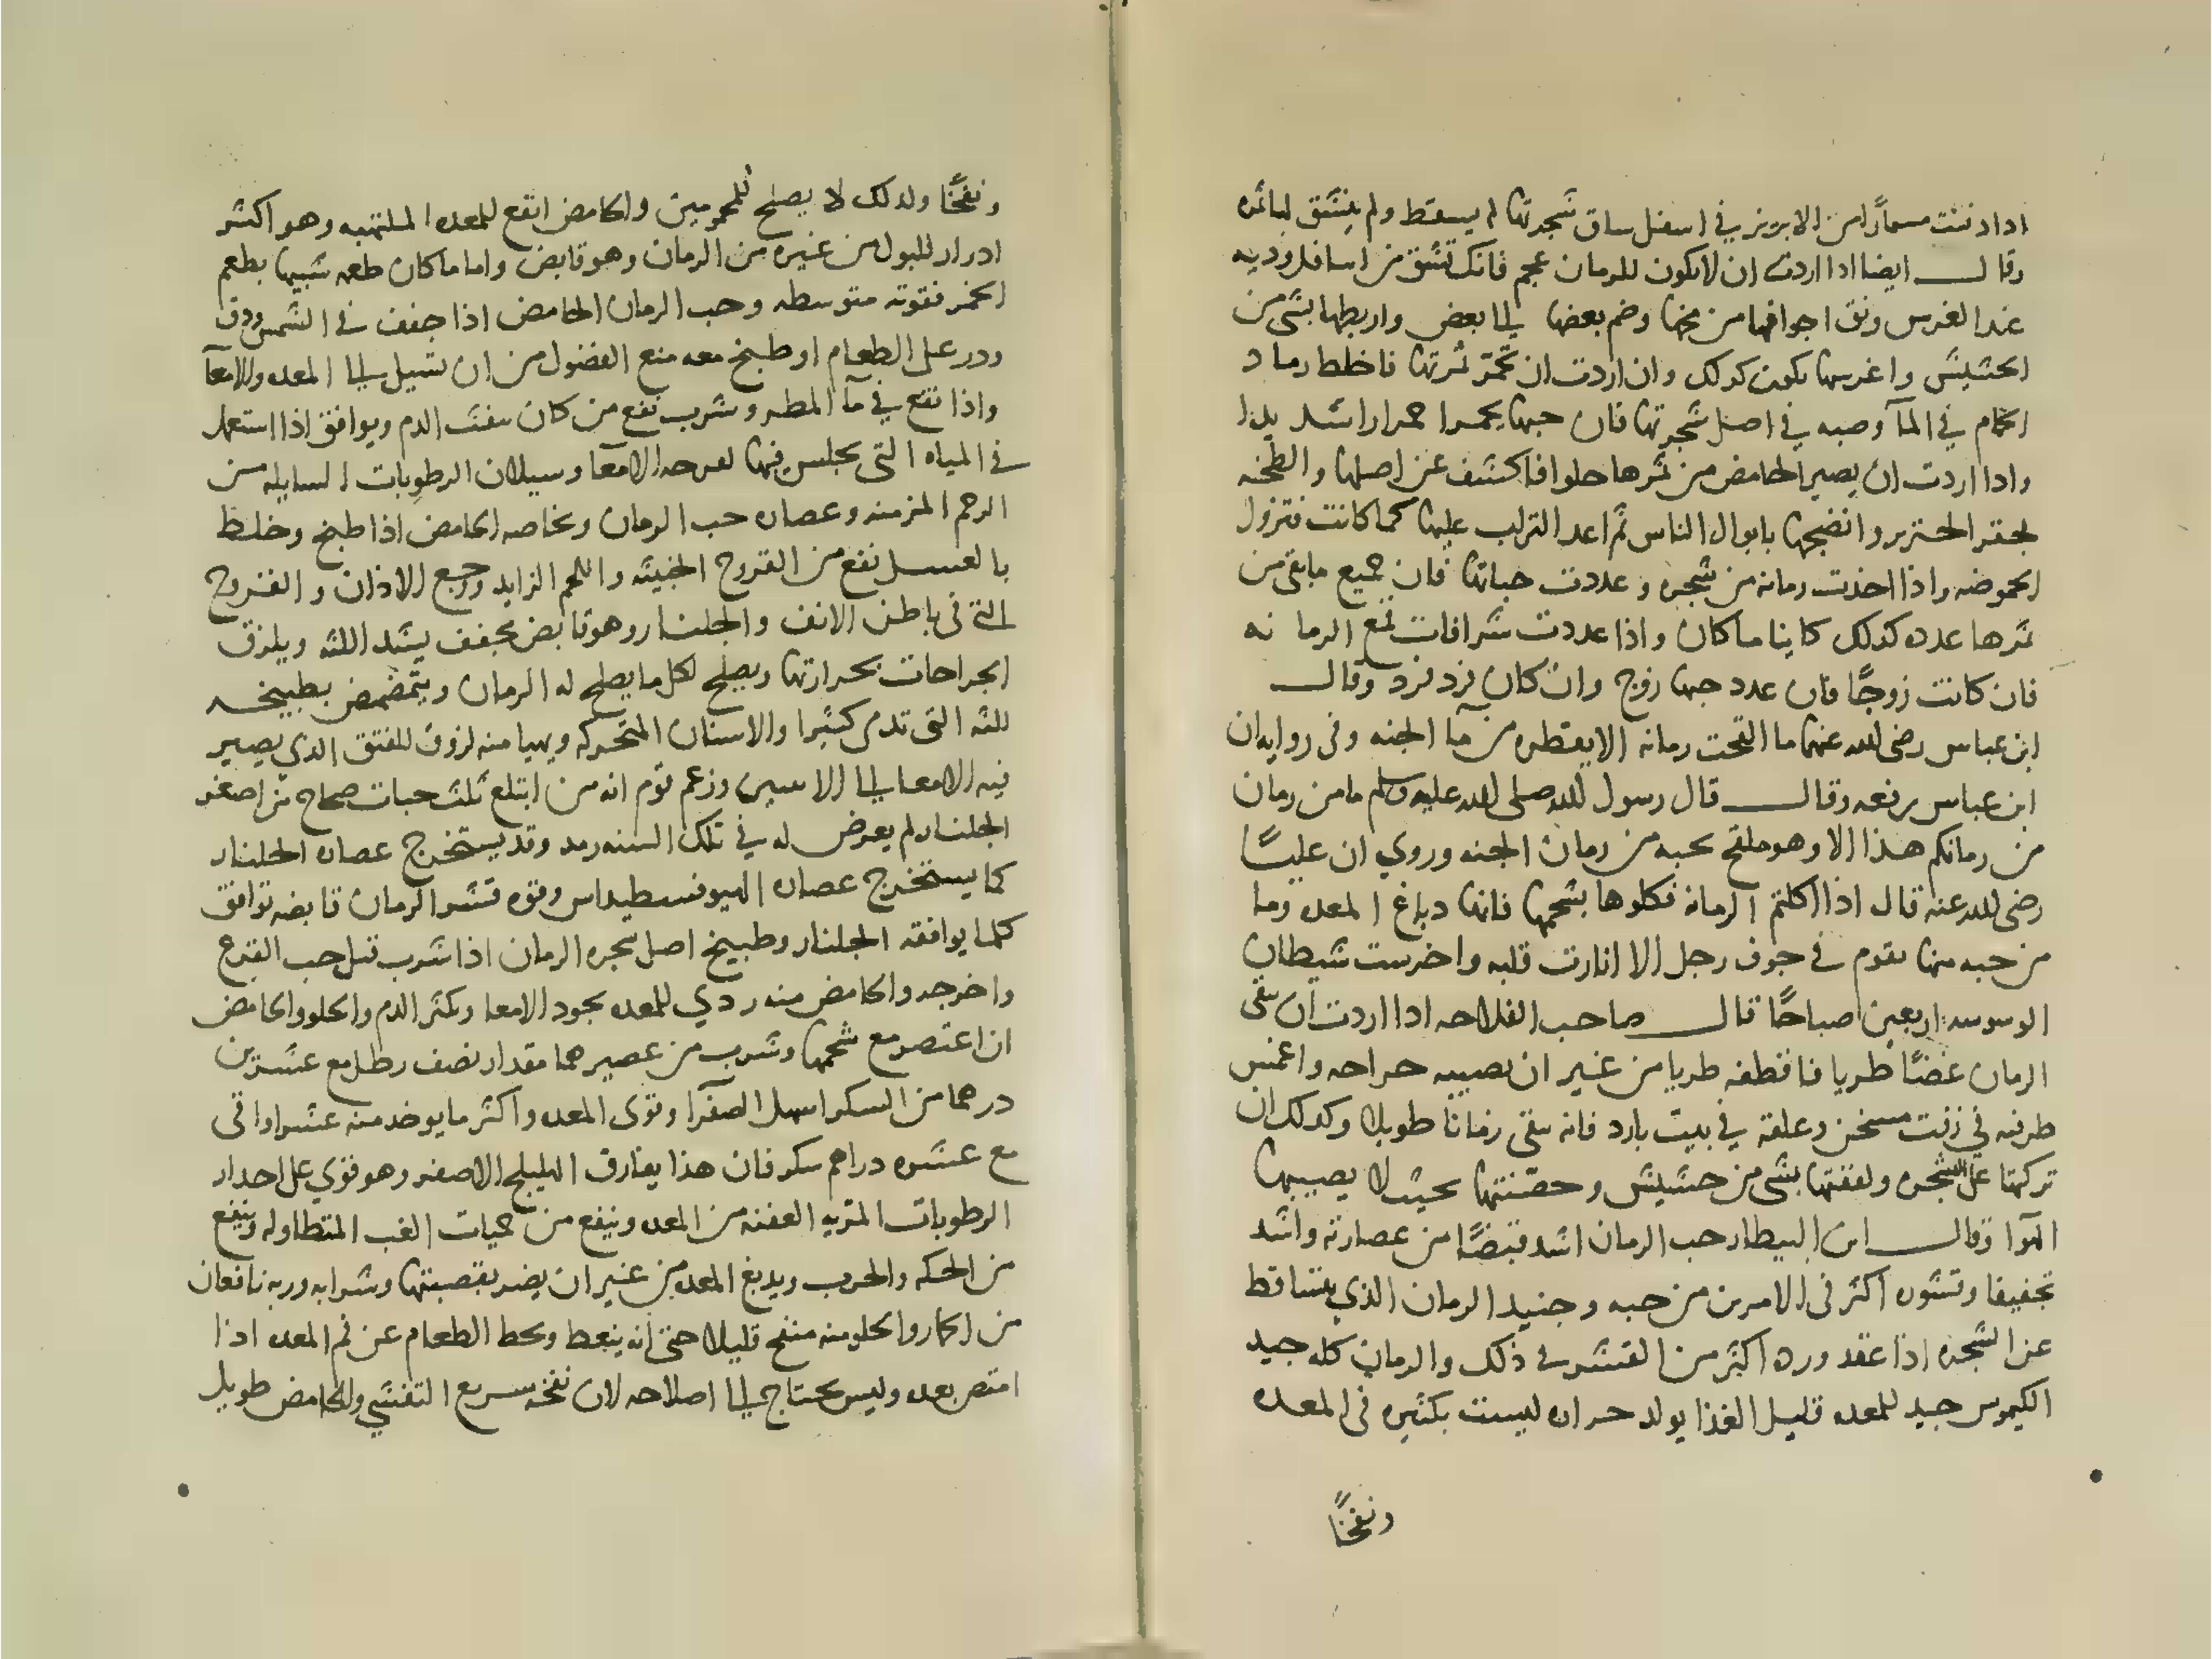 ادا دفنت مسمارًا من الابريز في اسفل ساق شجرتها لم يسقط ولم ينشق لمائه
وقال ايضا ادا اردت ان لا يكون للرمان عجم فانك تشق من اسافل وديه
عند الغرس ونق اجوافها من مخها وضم بعضها الى بعض واربطها بشي من
الحشيش واغرسها يكون كدلك وان اردت ان تحمر ثمرتها فاخلط رماد
الحمام في المآ وصبه في اصل شجرتها فان حبها يحمر احمرارا شديدا
وادا اردت ان يصير الحامض من ثمرها حلوا فاكشف عن اصلها والطخه
بجعر الخنزير وانضجها بابوال الناس ثم اعد التراب عليها كما كانت فتزول
الحموضه واذا اخذت رمانه من شجره وعددت حباتها فان جميع ما بقى من
ثمرها عدده كذلك كاينا ما كان واذا عددت شرافات قمع الرمانه
فان كانت زوجًا فان عدد حبها زوج وان كان فرد فرد وقال
ابن عباس رضى الله عنهما ما القحت رمانه الا بقطره من مآ الجنه وفى روايه ان
ابن عباس يرفعه وقال قال رسول الله صلى الله عليه وسلم ما من رمان
من رمانكم هذا الا وهو ملقح بحبه من رمان الجنه وروي ان عليـًا
رضى الله عنه قال اذا اكلتم الرمانه فكلوها بشحمها فانها دباغ المعده وما
من حبه منها تقوم في جوف رجل الا انارت قلبه واخرست شيطان
الوسوسه اربعين صباحًا قال صاحب الفلاحه ادا اردت ان يبقى
الرمان غضًا طريا فاقطفه طريا من غير ان يصيبه جراحه واغمس
طرفه في زفت مسخن وعلقه في بيت بارد فانه يبقى زمانا طويلا وكدلك ان
تركتها على الشجره ولففتها بشى من حشيش وحقنتها بحيث لا يصيبها
الهوا وقال ابن البيطار حب الرمان اشد قبضًا من عصارته واشد
تجفيفا وقشوره اكثر فى الامرين من حبه وجنبد الرمان الذي يتساقط
عن الشجره اذا عقد ورده اكثر من القشر في ذلك والرمان كله جيد
الكيموس جيد للمعده قليل الغذا يولد حراره ليست بكثيره فى المعده
ونفخًا
ونفخًا ولدلك لا يصلح للمحمومين والحامض انفع للمعده الملتهبه وهو اكثر
ادرار للبول من غيره من الرمان وهو قابض واما ما كان طعمه شبيها بطعم
الخمر فقوته متوسطه وحب الرمان الحامض اذا جفف في الشمس ودق
ودر على الطعام او طبخ معه منع الفضول من ان تسيل الى المعده والامعآ
واذا نقع في مآ المطر وشرب نفع من كان ينفث الدم ويوافق اذا استعمل
في المياه التى يجلس فيها لقرحه الامعآ وسيلان الرطوبات السايله من
الرحم المزمنه وعصاره حب الرمان وبخاصه الحامض اذا طبخ وخلط
بالعسل نفع من القروح الخبيثه واللحم الزايد ووجع الاذان والقروح
التى فى باطن الانف والجلنار وهو قابض يجفف يشد اللثه ويلزق
الجراحات بحرارتها ويصلح لكل ما يصلح له الرمان ويتمضمض بطبيخه
للثه التى تدمى كثيرا والاسنان المتحركه ويهيا منه لزوق للفتق الذي يصير
فيه الامعا الى الانثيين وزعم قوم انه من ابتلع ثلث حبات صحاح من اصغر
الجلنار لم يعرض له في تلك السنه رمد وقد يستخرج عصاره الجلنار
كما يستخرج عصاره الهيوفسطيداس وقوه قشر الرمان قابضه توافق
كلما يوافقه الجلنار وطبيخ اصل شجره الرمان اذا شرب قتل حب القرع
واخرجه والحامض منه ردي للمعده يجرد الامعا ويكثر الدم والحلو والحامض
ان اعتصر مع شحمها وشرب من عصيرهما مقدار نصف رطل مع عشرين
درهما من السكر اسهل الصفرآ وقوى المعده واكثر ما يوخد منه عشر اواقى
مع عشره دراهم سكر فان هذا يقارب الهليلج الاصفر وهو قوي على احدار
الرطوبات المريه العفنه من المعده وينفع من حميات الغب المتطاوله وينفع
من الحكه والجرب ويدبغ المعده من غير ان يضر بقصبتها وشرابه وربه نافعان
من الخمار والحلو منه منفخ قليلا حتى انه ينعظ ويحط الطعام عن فم المعده اذا
امتص بعده وليس يحتاج الى اصلاحه لان نفخه سريع التفشي والحامض طويل